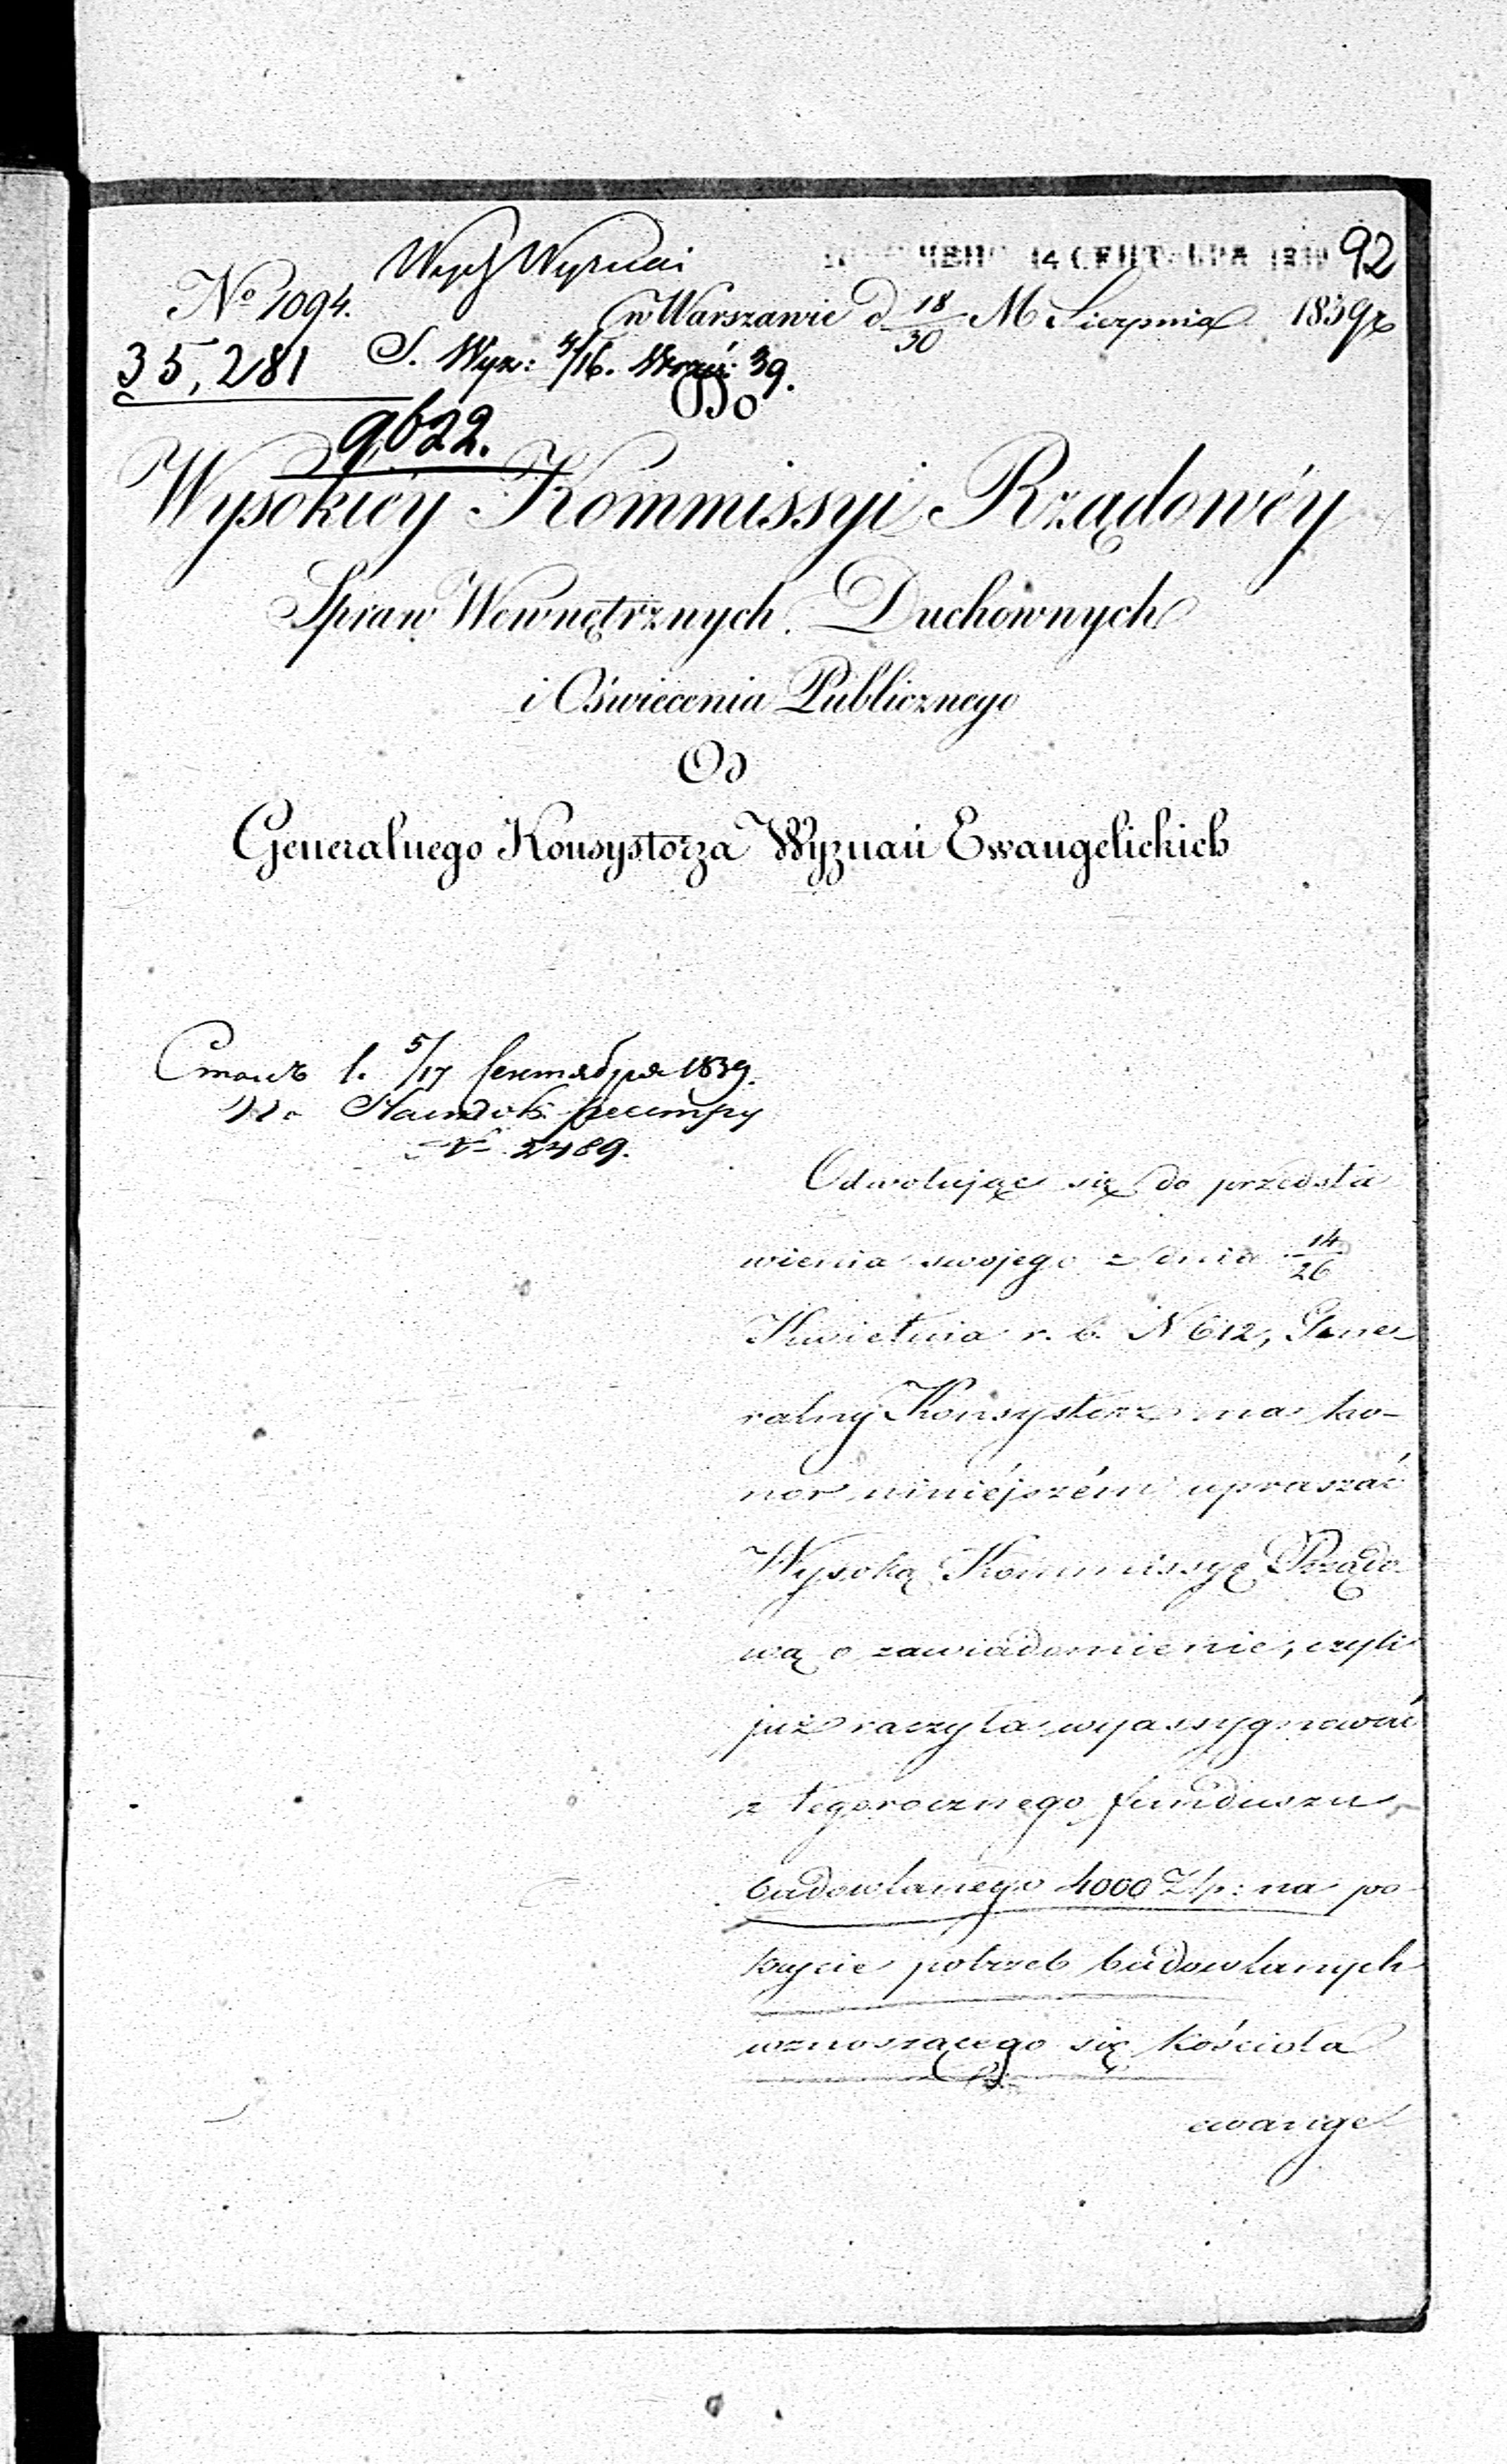 92
14 СЕНТЯБРЯ 1839
Wydz Wyznań
№ 1094.
w Warszawie d 18/30 M Sierpnia 1839 r
35,281
S. Wyz: 4/16. Wrześ: 39.
Do
9622.
Wysokiey Kommissyi Rządowéy
Spraw Wewnętrznych, Duchownych
i Oświecenia Publicznego
Od
Generalnego Konsystorza Wyznań Ewangelickich
5/17 Сентября 1839.
№ 2489.
Odwołując się do przedsta
wienia swojego z dnia 14/26
Kwietnia r. b. N 612, Gene
ralny Konsystorz ma ho-
nor niniéjszém upraszać
Wysoką Kommissyę Rządo
wą o zawiadomienie, czyli
już raczyła wyassygnować
z tegorocznego funduszu
budowlanego 4000 Złp: na po
krycie potrzeb budowlanych
wznoszącego się kościoła
ewangel